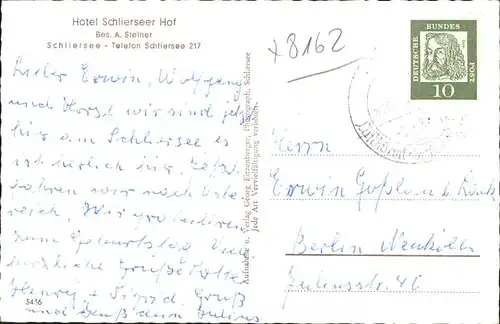 Hotel Schlierseer Hof
Bes. A. Steiner
Schliersee - Telefon Schliersee 217
x8162
DEUTSCHE BUNDESPOST
10
Lieber Erwin, Wolfgang
und Horst, wir sind jetzt
hier am Schliersee es
ist herrlich hier,
fahren wir nach Öster
reich. Wir gratulieren
zum Geburtstag
herzliche Grüße
Gruß
und
3416
Aufnahme u. Verlag Georg Eitzenberger, Photograph, Schliersee
Jede Art Vervielfältigung verboten.
Herrn
Erwin
Berlin Neukölln
Juliusstr. 40